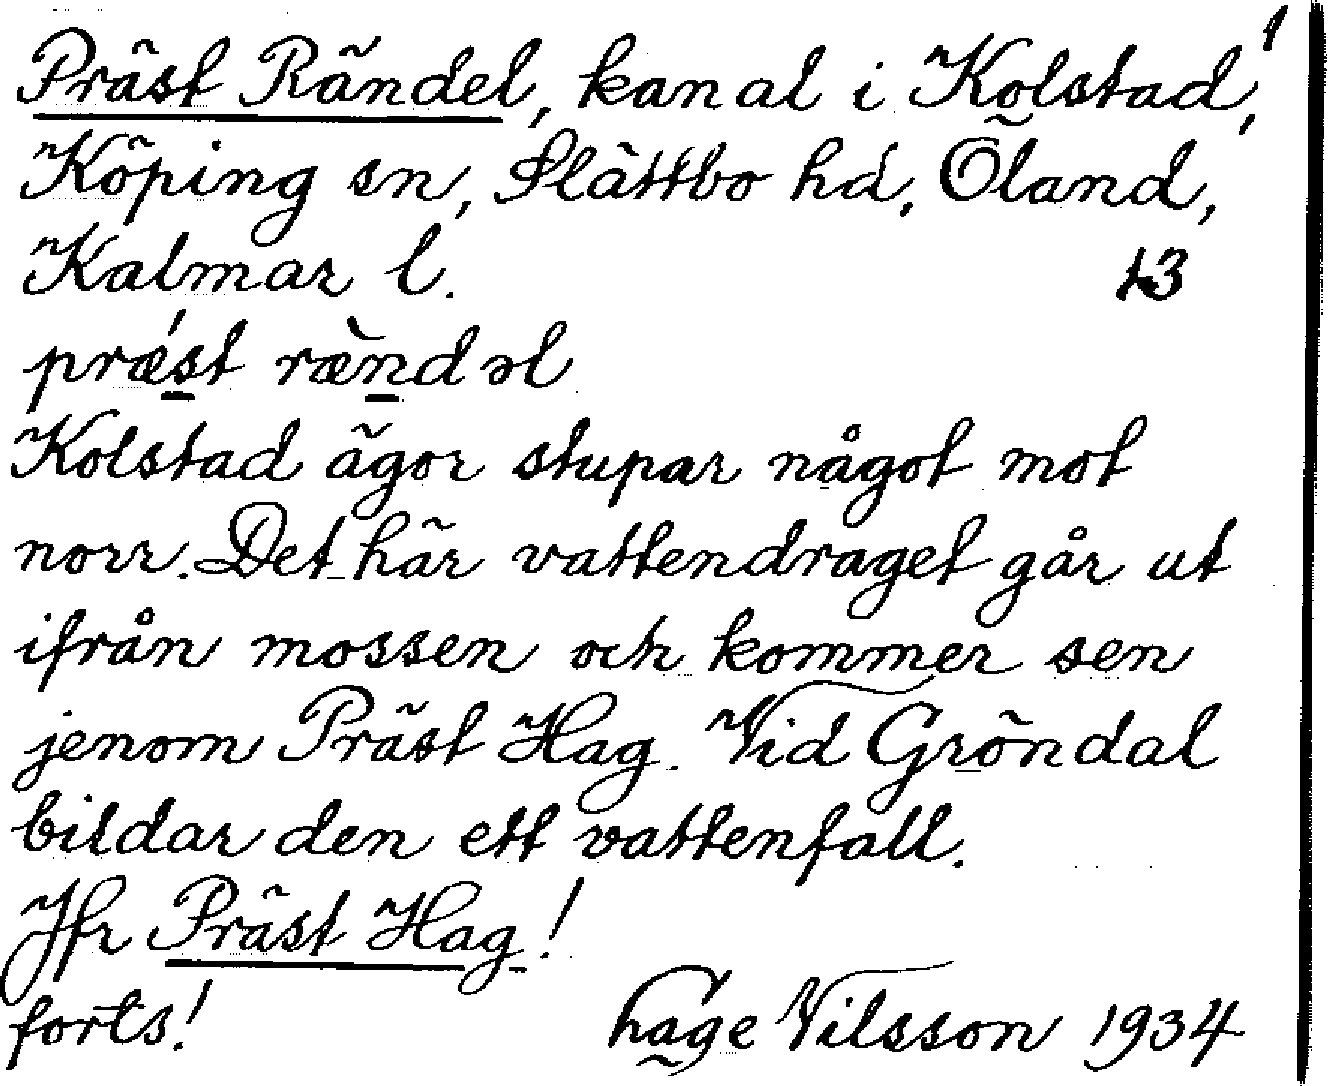 Präst Rändel, kanal i Kolstad, 1
Köping sn, Slättbo hd, Öland,
Kalmar l. 13
prǽst ræ̀ndəl
Kolstad ägor stupar något mot
norr. Det här vattendraget går ut
ifrån mossen och kommer sen
jenom Präst Hag. Vid Gröndal
bildar den ett vattenfall.
Jfr Präst Hag!
forts! Hage Nilsson 1934